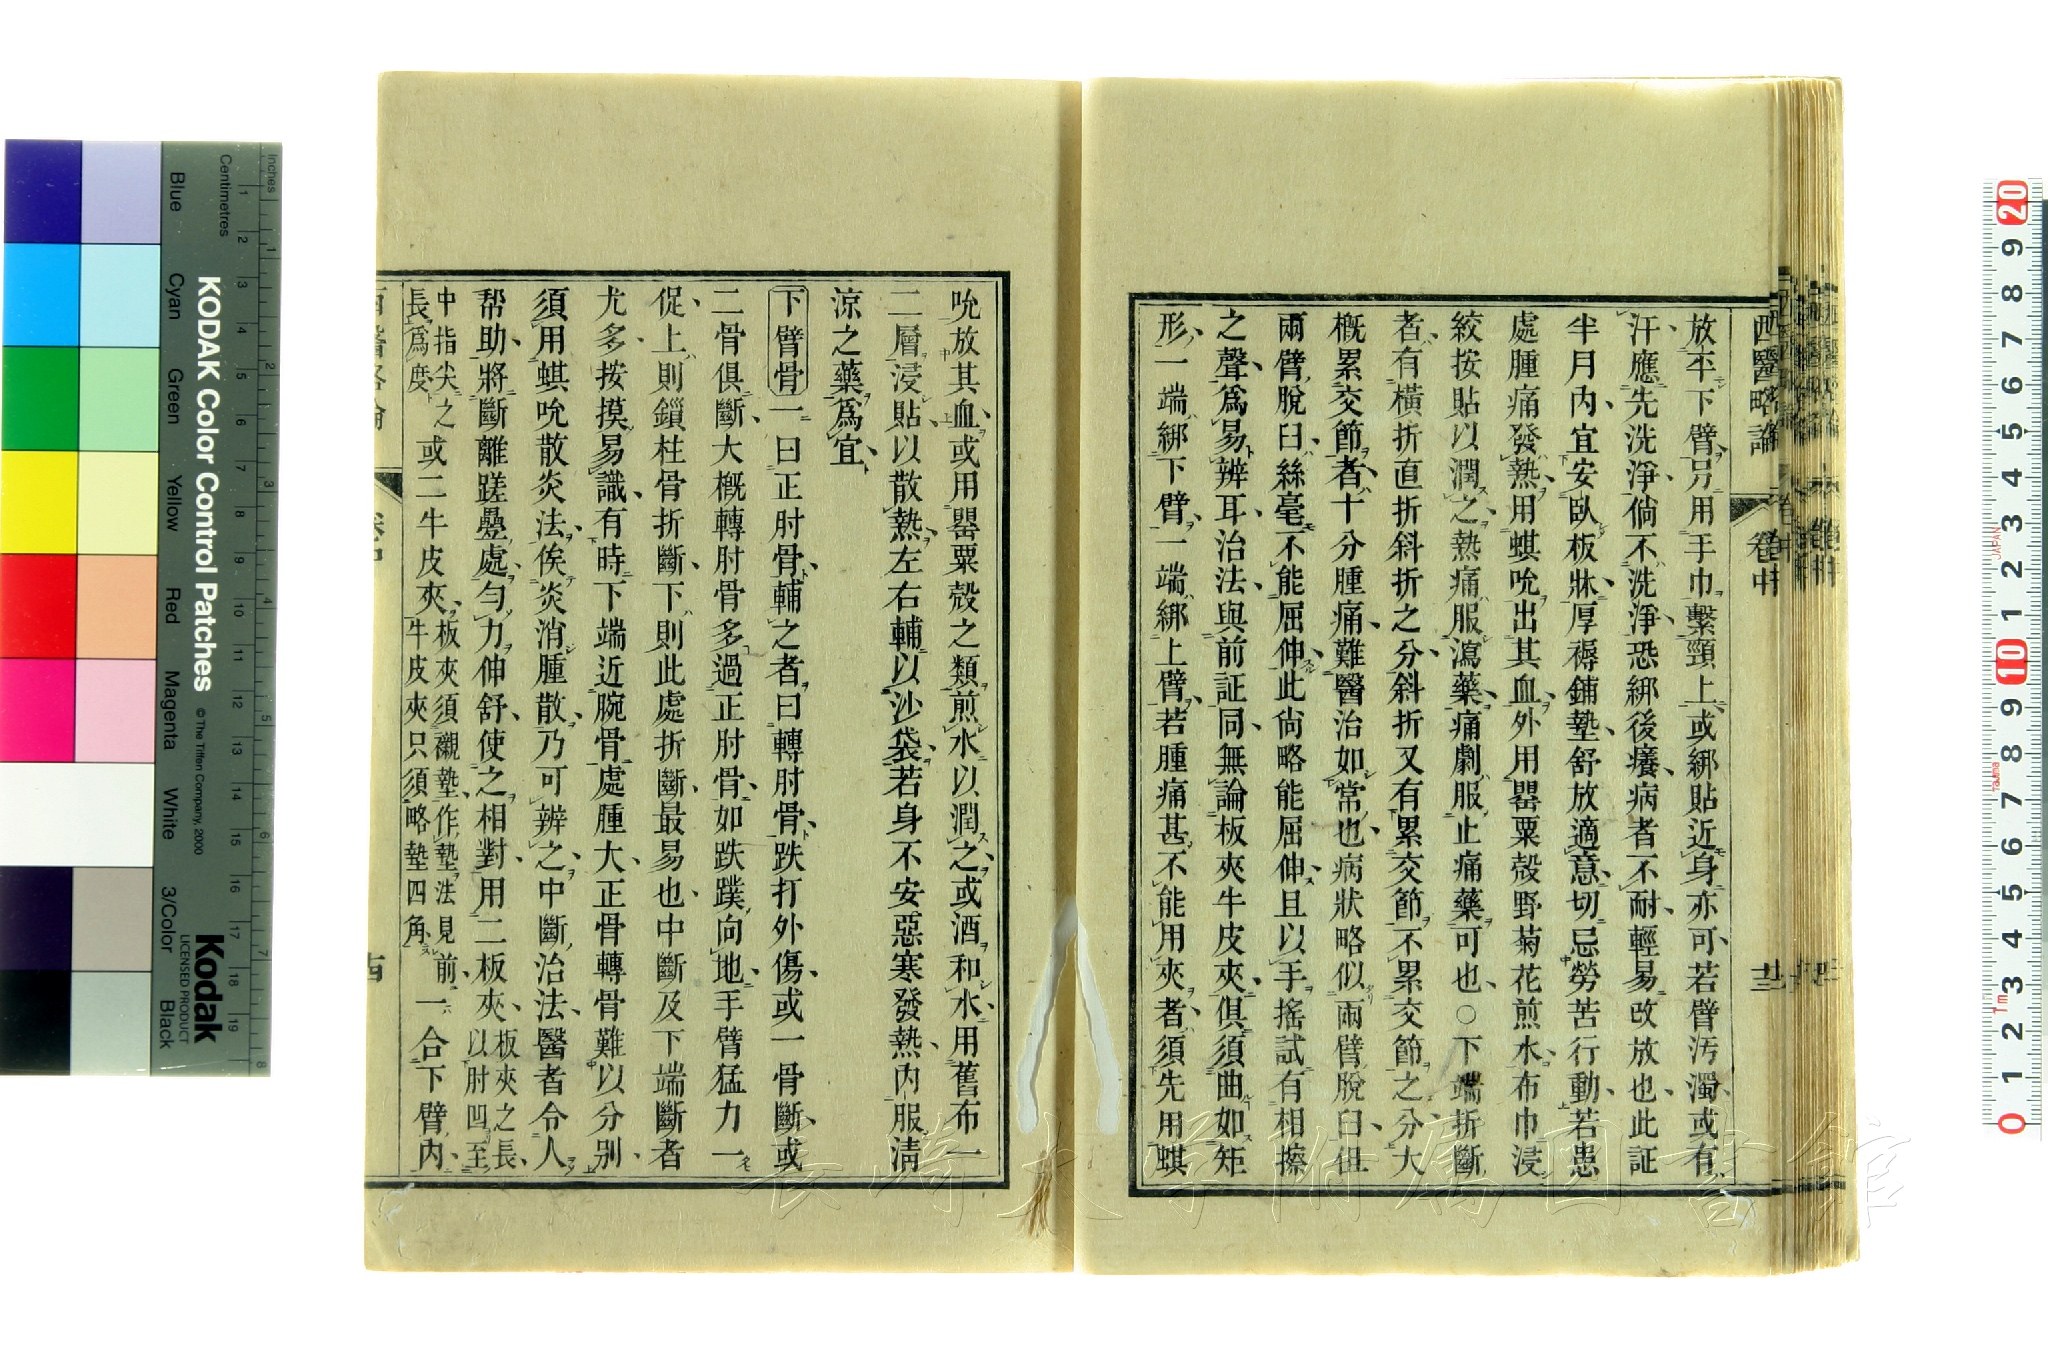 西醫略論
卷中
廿三
放平下臂另用手巾繫頸上或綁貼近身亦可若臂汚濁或有
汗應先洗淨倘不洗淨恐綁後癢病者不耐輕易改放也此証
半月內宜安臥板牀厚褥鋪墊舒放適意切忌勞苦行動若患
處腫痛發熱用蜞吮出其血外用罌粟殼野菊花煎水布巾浸
絞按貼以潤之熱痛服瀉藥痛劇服止痛藥可也○下端折斷
者有橫折直折斜折之分斜折又有累交節不累交節之分大
概累交節者十分腫痛難醫治如常也病狀略似兩臂脫臼但
兩臂脫臼絲毫不能屈伸此尙略能屈伸且以手搖試有相擦
之聲爲易辨耳治法與前証同無論板夾牛皮夾俱須曲如矩
形一端綁下臂一端綁上臂若腫痛甚不能用夾者須先用蜞
吮放其血或用罌粟殼之類煎水以潤之或酒和水用舊布一
二層浸貼以散熱左右輔以沙袋若身不安惡寒發熱內服淸
涼之藥爲宜
下臂骨一曰正肘骨輔之者曰轉肘骨跌打外傷或一骨斷或
二骨俱斷大概轉肘骨多過正肘骨如跌蹼向地手臂猛力一
促上則鎖柱骨折斷下則此處折斷最易也中斷及下端斷者
尤多按摸易識有時下端近腕骨處腫大正骨轉骨難以分別
須用蜞吮散炎法俟炎消腫散乃可辨之中斷治法醫者令人
帮助將斷離蹉疊處勻力伸舒使之相對用二板夾板夾之長以肘凹至
中指尖之長爲度或二牛皮夾板夾須襯墊作墊法見前牛皮夾只須略墊四角一合下臂內
KODAK Color Control Patches
© The Tiffen Company, 2000
Kodak
LICENSED PRODUCT
Inches
Centimetres
Blue
Cyan
Green
Yellow
Red
Magenta
White
3/Color
Black
長崎大学附属図書館